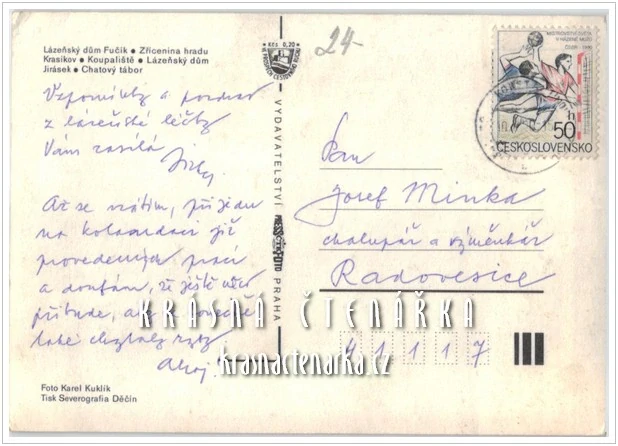 Lázeňský dům Fučík • Zřícenina hradu
Krasíkov • Koupaliště • Lázeňský dům
Jirásek • Chatový tábor
Vzpomínky a pozdrav
z lázeňské léčby
Vám zasílá
Až se vrátím, přijedu
na kolaudaci již
provedených prací
a doufám, že ještě něco
přibude, ale
také
Ahoj
Foto Karel Kuklík
Tisk Severografia Děčín
Kčs 0,20
VYDAVATELSTVÍ
PRESSFOTO
PRAHA
24-
MISTROVSTVÍ SVĚTA
V HÁZENÉ MUŽŮ
ČSSR - 1990
50 h
ČESKOSLOVENSKO
Pan
Josef Minka
chalupář a výměnkář
Radovesice
41117
KRÁSNÁ ČTENÁŘKA
krasnactenarka.cz